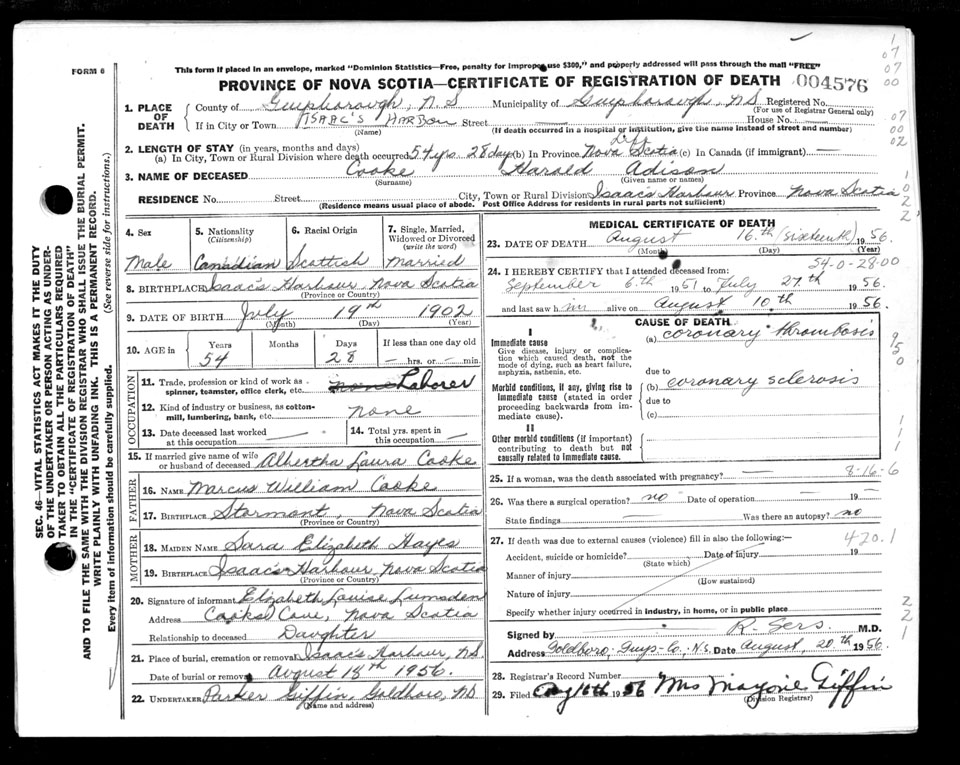 FORM 6
This form if placed in an envelope, marked "Dominion Statistics—Free, penalty for improper use $300," and properly addressed will pass through the mail "FREE"
PROVINCE OF NOVA SCOTIA—CERTIFICATE OF REGISTRATION OF DEATH 004576
1. PLACE OF DEATH
County of Guysborough, N.S Municipality of Guysborough, NS Registered No.
(For use of Registrar General only)
If in City or Town ISAAC'S HARBOUR Street House No.
(Name) (If death occurred in a hospital or institution, give the name instead of street and number)
2. LENGTH OF STAY (in years, months and days)
Life
(a) In City, Town or Rural Division where death occurred 54 yrs. 28 days (b) In Province Nova Scotia (c) In Canada (if immigrant) —
3. NAME OF DECEASED Cooke Harold Adison
(Surname) (Given name or names)
RESIDENCE No. Street City, Town or Rural Division Isaac's Harbour Province Nova Scotia
(Residence means usual place of abode. Post Office Address for residents in rural parts not sufficient)
4. Sex
Male
5. Nationality
(Citizenship)
Canadian
6. Racial Origin
Scottish
7. Single, Married, Widowed or Divorced
(write the word)
Married
8. BIRTHPLACE Isaac's Harbour Nova Scotia
(Province or Country)
9. DATE OF BIRTH July 19th 1902
(Month) (Day) (Year)
10. AGE in
Years Months Days If less than one day old
54 28 — hrs. or — min.
OCCUPATION
11. Trade, profession or kind of work as spinner, teamster, office clerk, etc. none Laborer
12. Kind of industry or business, as cotton-mill, lumbering, bank, etc. none
13. Date deceased last worked at this occupation —
14. Total yrs. spent in this occupation —
15. If married give name of wife or husband of deceased Alhertha Laura Cooke
FATHER
16. NAME Marcus William Cooke
17. Birthplace Stormont, Nova Scotia
(Province or Country)
MOTHER
18. MAIDEN NAME Sara Elizabeth Hayes
19. BIRTHPLACE Isaac's Harbour Nova Scotia
(Province or Country)
20. Signature of informant Elizabeth Louise Lumsden
Address Cooks Cove, Nova Scotia
Relationship to deceased Daughter
21. Place of burial, cremation or removal Isaac's Harbour, N.S
Date of burial or removal August 18th 1956.
22. UNDERTAKER Parker Giffin, Goldboro, NS
(Name and address)
MEDICAL CERTIFICATE OF DEATH
23. DATE OF DEATH August 16th (sixteenth) 1956.
(Month) (Day) (Year)
54-0-28-00
24. I HEREBY CERTIFY that I attended deceased from:
September 6th 1951 to July 27th 1956
and last saw him alive on August 10th 1956.
CAUSE OF DEATH
I
Immediate cause
Give disease, injury or complication which caused death, not the mode of dying, such as heart failure, asphyxia, asthenia, etc.
(a) coronary thrombosis
due to
Morbid conditions, if any, giving rise to immediate cause (stated in order proceeding backwards from immediate cause).
(b) coronary sclerosis
due to
(c)
II
Other morbid conditions (if important) contributing to death but not causally related to immediate cause.
25. If a woman, was the death associated with pregnancy? —
8-16-6
26. Was there a surgical operation? no Date of operation — 19 —
State findings — Was there an autopsy? no
27. If death was due to external causes (violence) fill in also the following:—
420.1
Accident, suicide or homicide? Date of injury 19
(State which)
Manner of injury
(How sustained)
Nature of injury
Specify whether injury occurred in industry, in home, or in public place
Signed by R. Sers. M.D.
Address Goldboro, Guys-Co., N.S. Date August, 20th 1956
28. Registrar's Record Number
29. Filed Aug 16th 1956 Mrs Marjorie Giffin
(Division Registrar)
SEC. 46—VITAL STATISTICS ACT MAKES IT THE DUTY
OF THE UNDERTAKER OR PERSON ACTING AS UNDER-
TAKER TO OBTAIN ALL THE PARTICULARS REQUIRED
IN THE "CERTIFICATE OF REGISTRATION OF DEATH"
AND TO FILE THE SAME WITH THE DIVISION REGISTRAR WHO SHALL ISSUE THE BURIAL PERMIT.
WRITE PLAINLY WITH UNFADING INK. THIS IS A PERMANENT RECORD.
Every item of information should be carefully supplied. (See reverse side for instructions.)